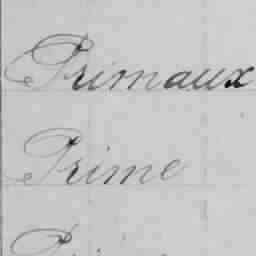 Primaux
Prime